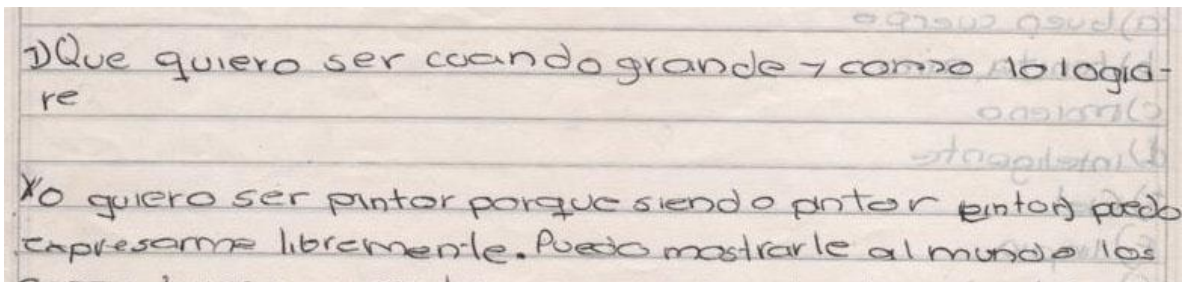 1) Que quiero ser cuando grande y como lo logra-
re
Yo quiero ser pintor porque siendo pntor pintor puedo
expresarme libremente. Puedo mostrarle al mundo los